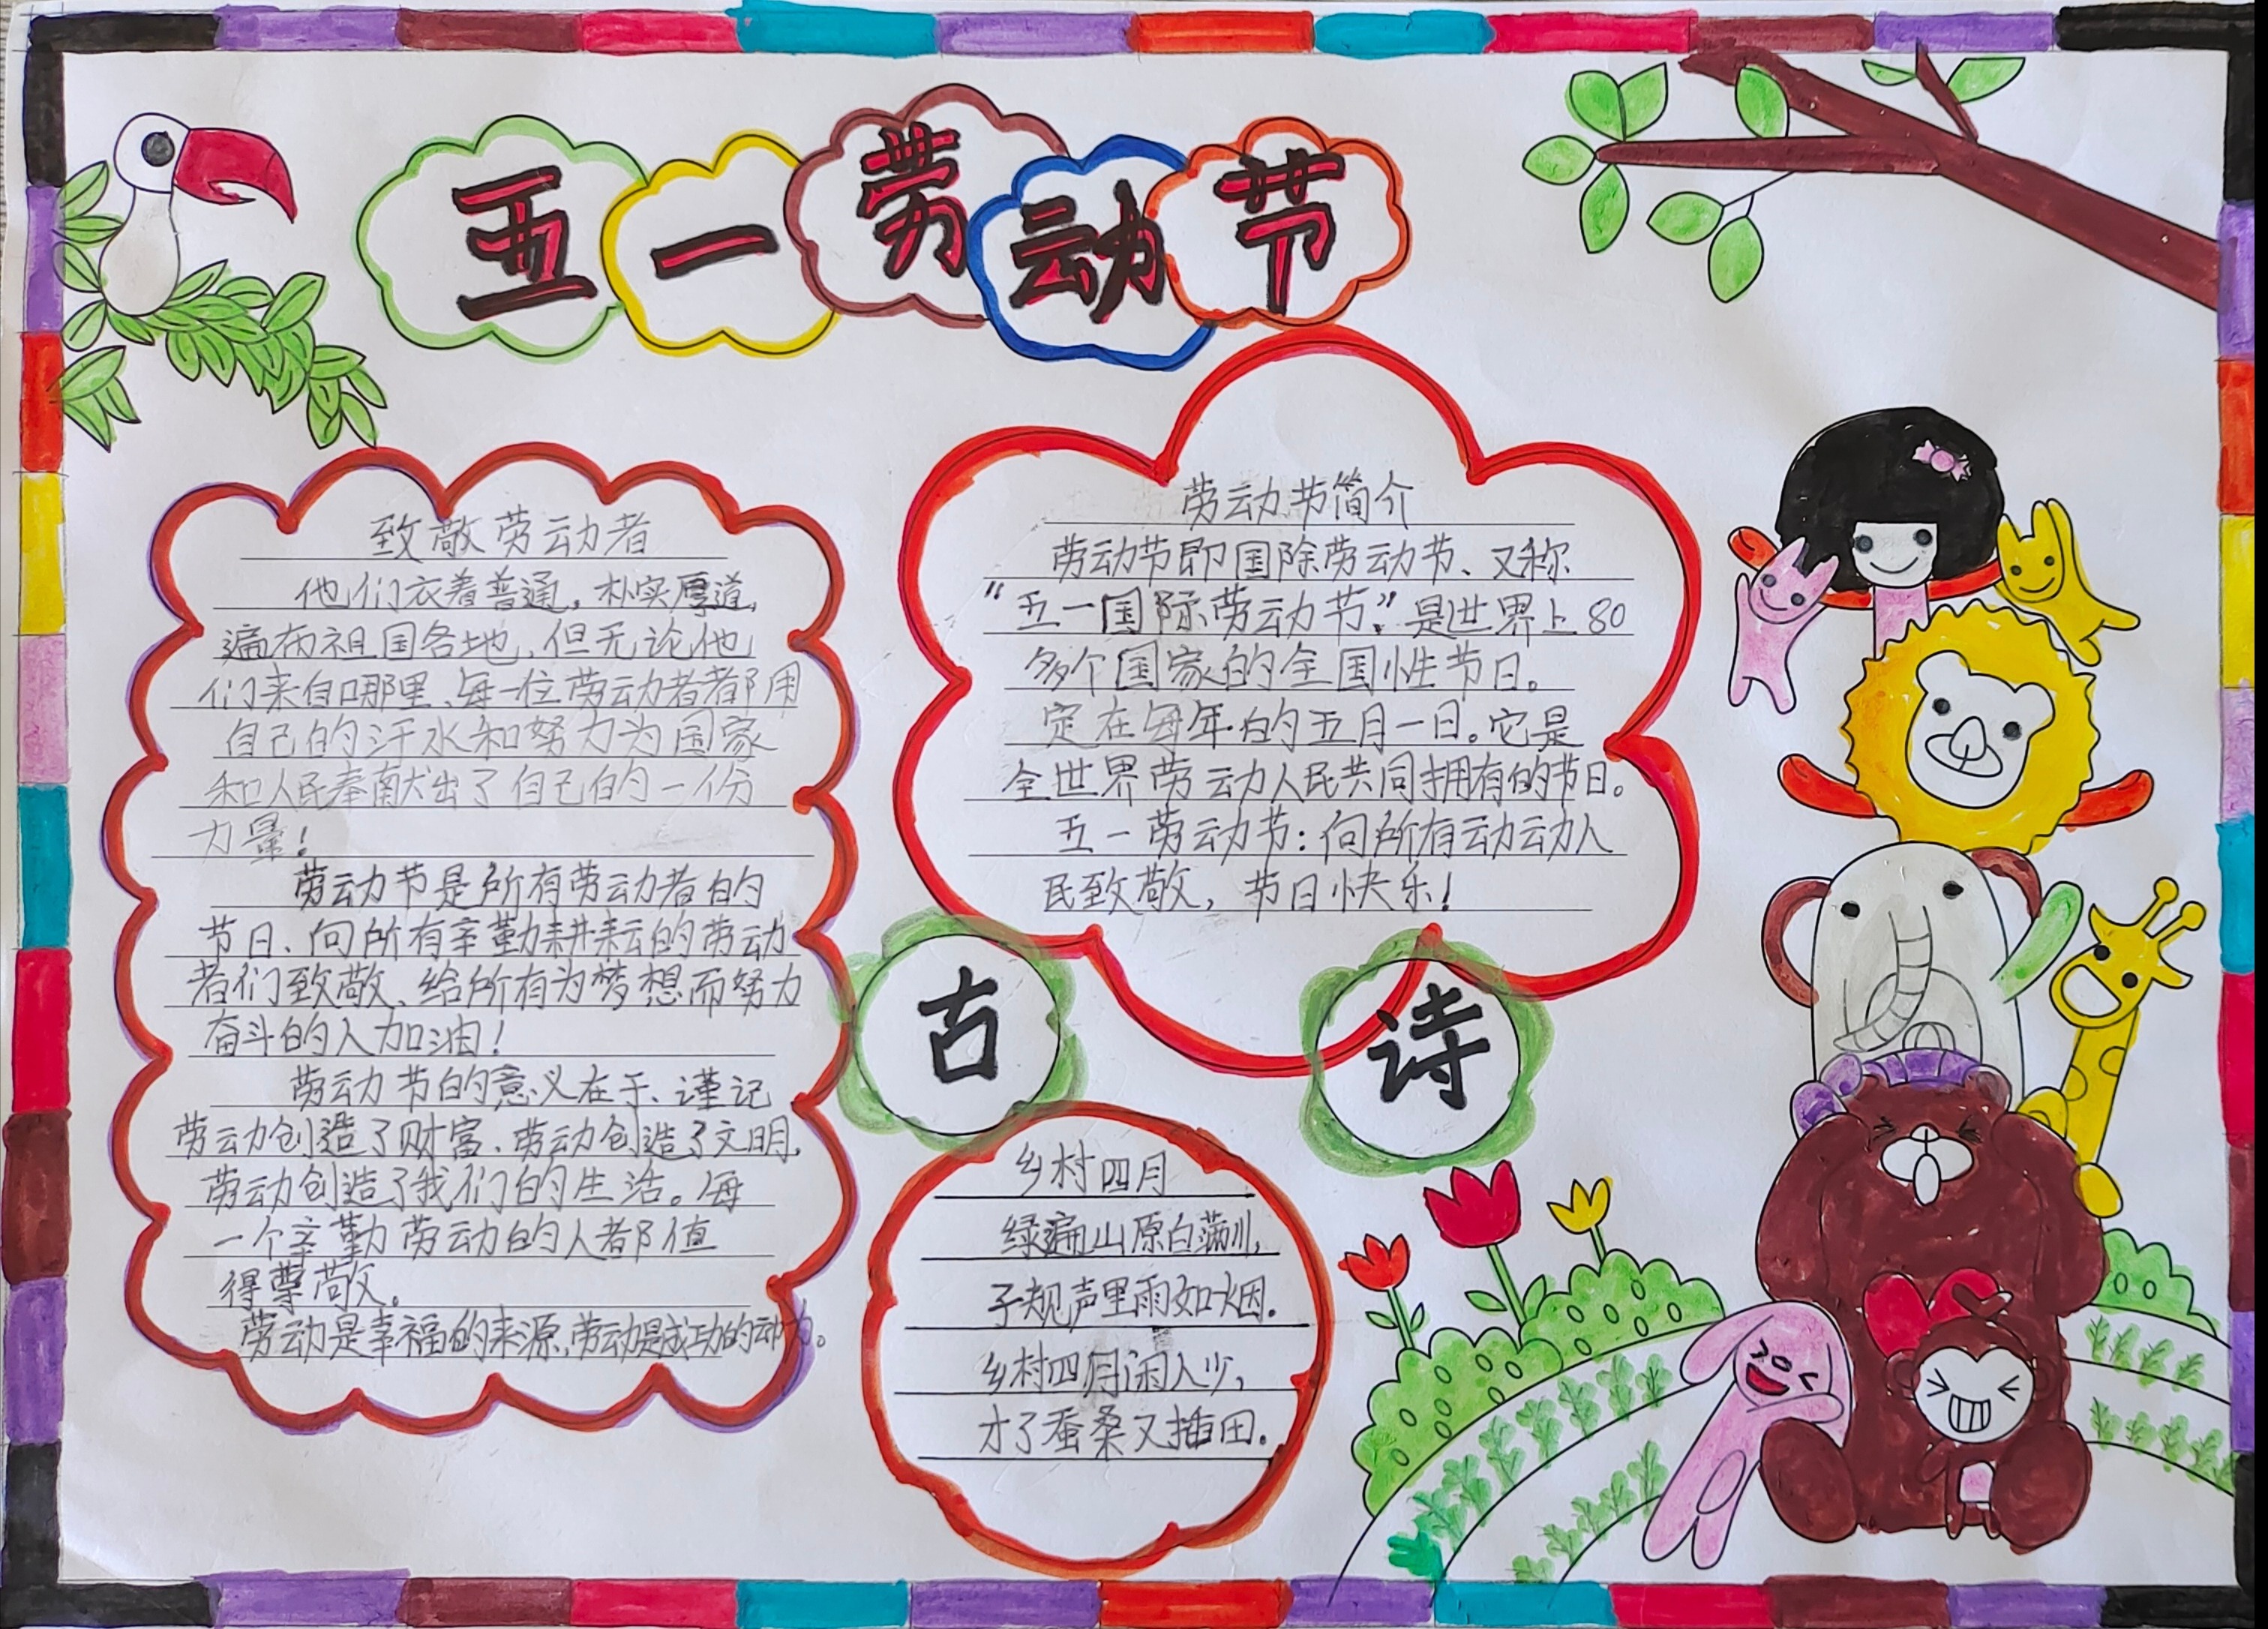 五一劳动节
致敬劳动者
他们衣着普通，朴实厚道，
遍布祖国各地，但无论他
们来自哪里、每一位劳动者都用
自己的汗水和努力为国家
和人民奉献出了自己的一份
力量！
劳动节是所有劳动者的
节日、向所有辛勤耕耘的劳动
者们致敬、给所有为梦想而努力
奋斗的人加油！
劳动节的意义在于、谨记
劳动创造了财富、劳动创造了文明，
劳动创造了我们的生活。每
一个辛勤劳动的人都值
得尊敬。
劳动是幸福的来源，劳动是成功的动力。
劳动节简介
劳动节即国除劳动节、又称
“五一国际劳动节”是世界上80
多个国家的全国性节日。
定在每年的五月一日。它是
全世界劳动人民共同拥有的节日。
五一劳动节：向所有动云动人
民致敬，节日快乐！
古诗
乡村四月
绿遍山原白满川，
子规声里雨如烟．
乡村四月闲人少，
才了蚕桑又插田．